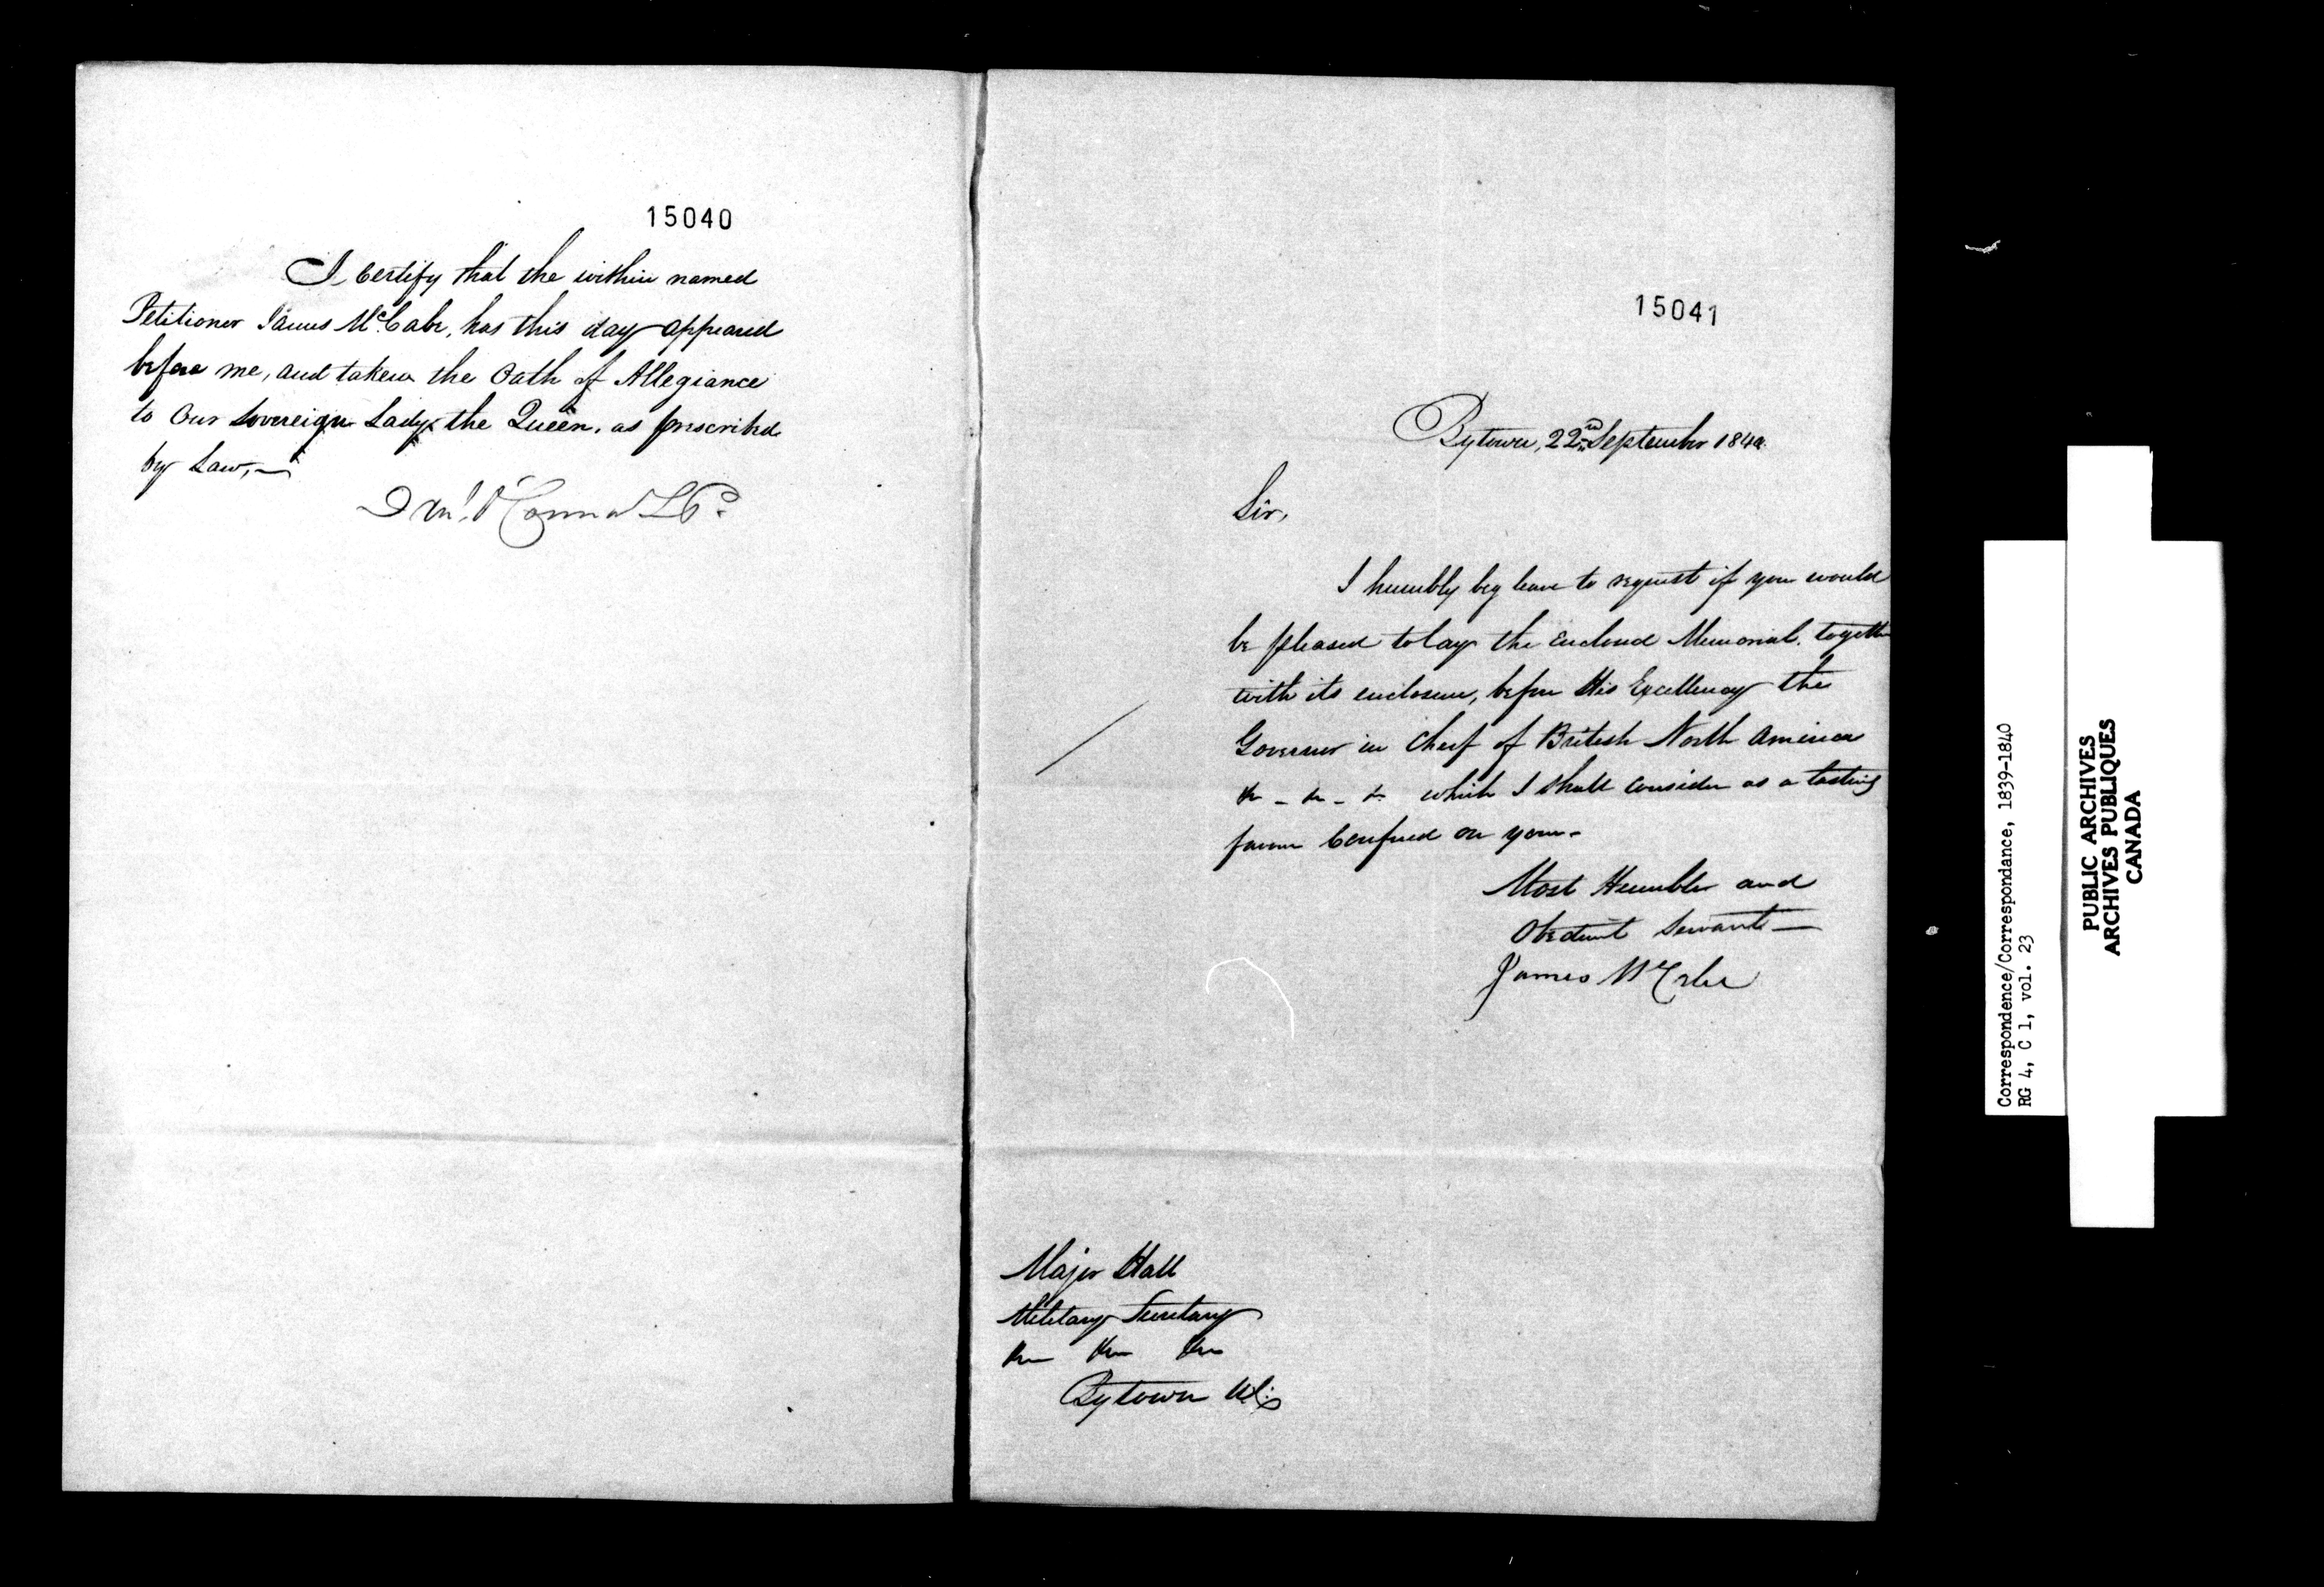 15040
I Certify that the within named
Petitioner James McCabe, has this day appeared
before me, and taken the Oath of Allegiance
to Our Sovereign Lady the Queen, as prescribed
by Law,—
15041
Bytown, 22nd September 1840
Sir,
I humbly beg leave to request if you would
be pleased to lay the Enclosed Memorial, together
with its enclosure, before His Excellency the
Governor in Cheif of British North America
&c - &c - &c which I shall consider as a lasting
favour Confered on your-
Most Humble and
Obedient Servant—
James McCabe
Major Hall
Military Secretary
&c &c &c
Bytown
Correspondence/Correspondance, 1839-1840
RG 4, C 1, vol. 23
PUBLIC ARCHIVES
ARCHIVES PUBLIQUES
CANADA